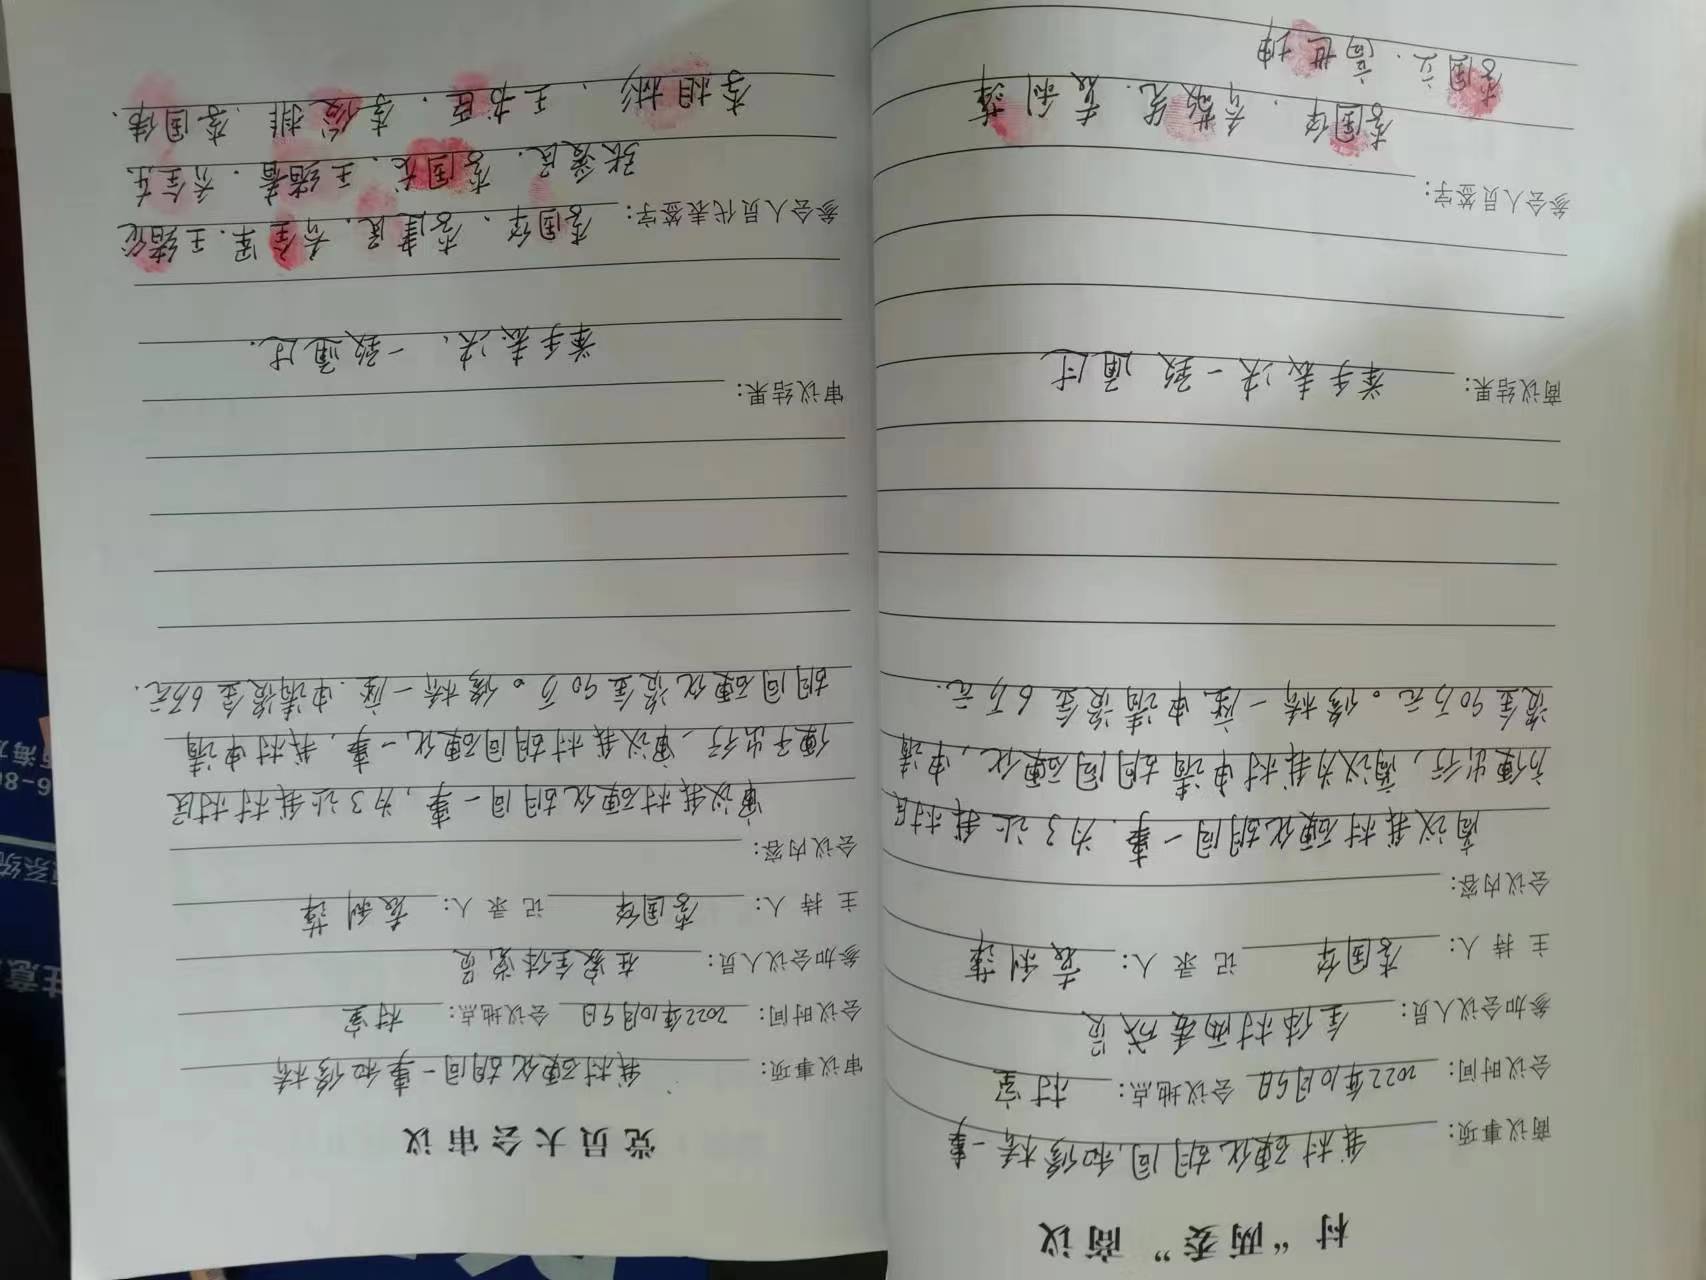 村“两委”商议
商议事项: 我村硬化胡同,和修桥一事
会议时间: 2022年10月5日 会议地点: 村室
参加会议人员: 全体村两委成员
主 持 人: 李国华 记 录 人: 袁利萍
会议内容:
商议我村硬化胡同一事.为了让我村村民
方便出行,商议为我村申请胡同硬化,申请
资金90万元。修桥一座申请资金6万元.
商议结果: 举手表决一致通过
参会人员签字:
李国华.李敬先.袁利萍
李国立.高世坤
党员大会审议
审议事项: 我村硬化胡同一事和修桥
会议时间: 2022年10月9日 会议地点: 村室
参加会议人员: 在家全体党员
主 持 人: 李国华 记 录 人: 袁利萍
会议内容:
审议我村硬化胡同一事,为了让我村村民
便于出行,审议我村胡同硬化一事,我村申请
胡同硬化资金90万。修桥一座.申请资金6万元.
审议结果:
举手表决、一致通过.
参会人员代表签字: 李国华、李建民.李全军.王绪伦
张爱民.李国长、王绪春.李全庄
李相彬、王书臣.李俊排.李国伟.